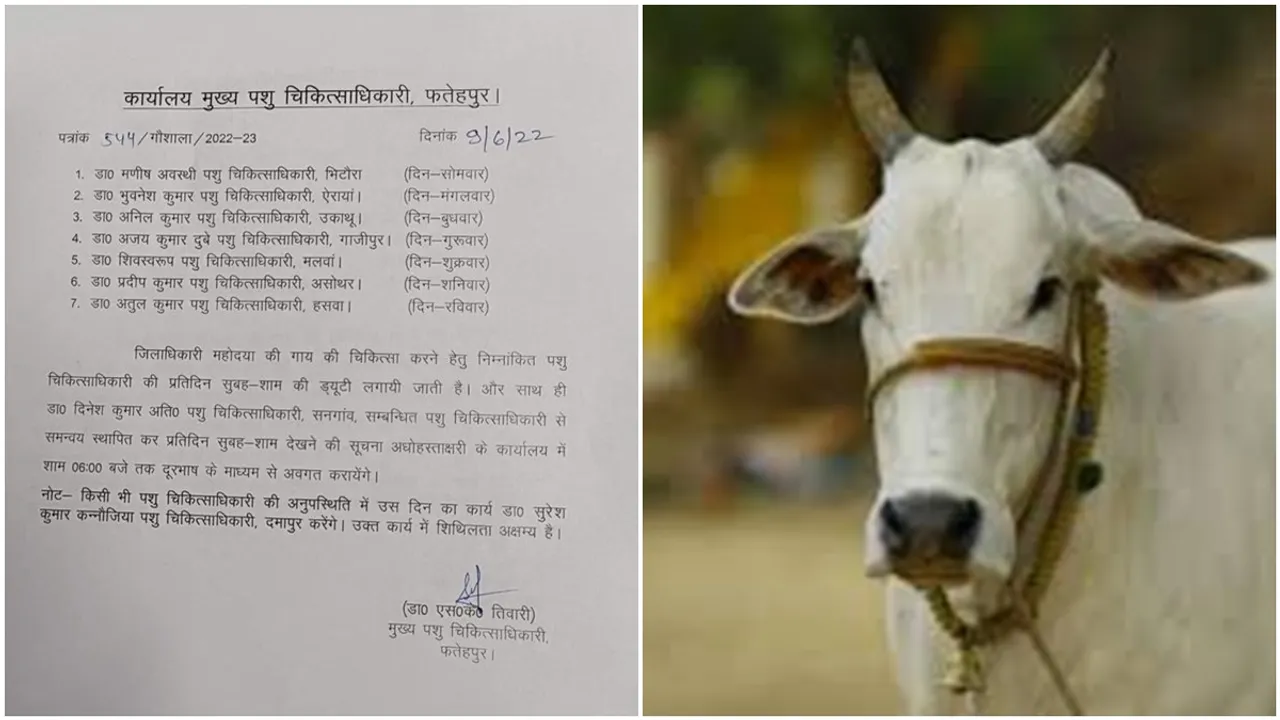 कार्यालय मुख्य पशु चिकित्साधिकारी, फतेहपुर।
पत्रांक 544/गौशाला/2022–23 दिनांक 9/6/22
1. डा0 मणीष अवस्थी पशु चिकित्साधिकारी, भिटौरा (दिन–सोमवार)
2. डा0 भुवनेश कुमार पशु चिकित्साधिकारी, ऐरायां। (दिन–मंगलवार)
3. डा0 अनिल कुमार पशु चिकित्साधिकारी, उकाथू। (दिन–बुधवार)
4. डा0 अजय कुमार दुबे पशु चिकित्साधिकारी, गाजीपुर। (दिन–गुरूवार)
5. डा0 शिवस्वरूप पशु चिकित्साधिकारी, मलवां। (दिन–शुक्रवार)
6. डा0 प्रदीप कुमार पशु चिकित्साधिकारी, असोथर। (दिन–शनिवार)
7. डा0 अतुल कुमार पशु चिकित्साधिकारी, हसवा। (दिन–रविवार)
जिलाधिकारी महोदया की गाय की चिकित्सा करने हेतु निम्नांकित पशु
चिकित्साधिकारी की प्रतिदिन सुबह–शाम की ड्यूटी लगायी जाती है। और साथ ही
डा0 दिनेश कुमार अति0 पशु चिकित्साधिकारी, सनगांव, सम्बन्धित पशु चिकित्साधिकारी से
समन्वय स्थापित कर प्रतिदिन सुबह–शाम देखने की सूचना अधोहस्ताक्षरी के कार्यालय में
शाम 06:00 बजे तक दूरभाष के माध्यम से अवगत करायेंगे।
नोट– किसी भी पशु चिकित्साधिकारी की अनुपस्थिति में उस दिन का कार्य डा0 सुरेश
कुमार कन्नौजिया पशु चिकित्साधिकारी, दमापुर करेंगे। उक्त कार्य में शिथिलता अक्षम्य है।
(डा0 एस0के0 तिवारी)
मुख्य पशु चिकित्साधिकारी,
फतेहपुर।